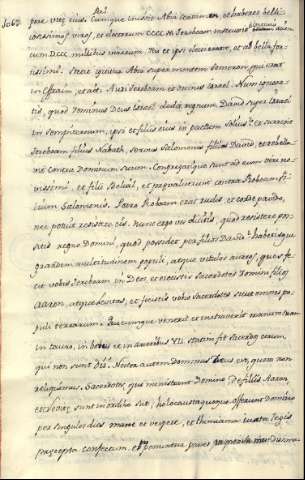 1063. Par.
pore vitę eius. Cumque inisset Abia certamen, et haberet belli
cosissimos viros, et electorum CCCC M. Ieroboam instruxit
cum DCCC millibus virorum, et ipsi electorum, et ad bella for
tissimi. Stetit igitur Abia super montem Semeron qui erat
in Effraim, et ait: Audi Ieroboam et omnis Israel. Num ignora
tis, quod Dominus Deus Israel dedit regnum David super Israel
in sempiternum, ipsi et filiis eius in pactum salis? et surrexit
Ieroboam filius Nabath, servus Salomonis filii David, et rebella
vit contra Dominum suum. Congregatique sunt ad eum viri va
nissimi, et filii Belial, et prevaluerunt contra Roboam fi
lium Salomonis. Porro Roboam erat rudis et corde pavido,
nec potuit resistere eis. Nunc ergo vos dicitis, quod resistere pos
sitis regno Domini, quod possidet per filios David: habetisque
grandem multitudinem populi, atque vitulos aureos, quos fe
cit vobis Ieroboam in Deos. et eiecistis Sacerdotes Domini filios
Aaron, atque Levitas, et fecistis vobis sacerdotes sicut omnes po
puli terrarum. Quicumque venerit et initiaverit manum suam
in tauro, in bobus et in arietibus VII. statim fit sacerdos eorum
qui non sunt Dii. Noster autem Dominus Deus est, quem non
relinquimus. Sacerdotes que ministrant Domino de filiis Aaron,
et Levitę sunt in ordine suo, holocausta quoque offerunt Domino
per singulos dies mane et vespere, et thimiama iuxta legis
pręcepta confectum, et proponuntur panes in mensa mundissima